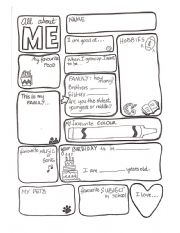 All about
ME
NAME
I am good at...
HOBBIES
My favourite
FOOD
When I grow up I want to be...
This is my
FAMILY...
FAMILY: how many
Brothers
Sisters
Are you the oldest,
youngest or middle?
My favourite COLOUR
favourite
Song
My BIRTHDAY is in
I am years old.
MY PETS
favourite SUBJECT
in school
I love...